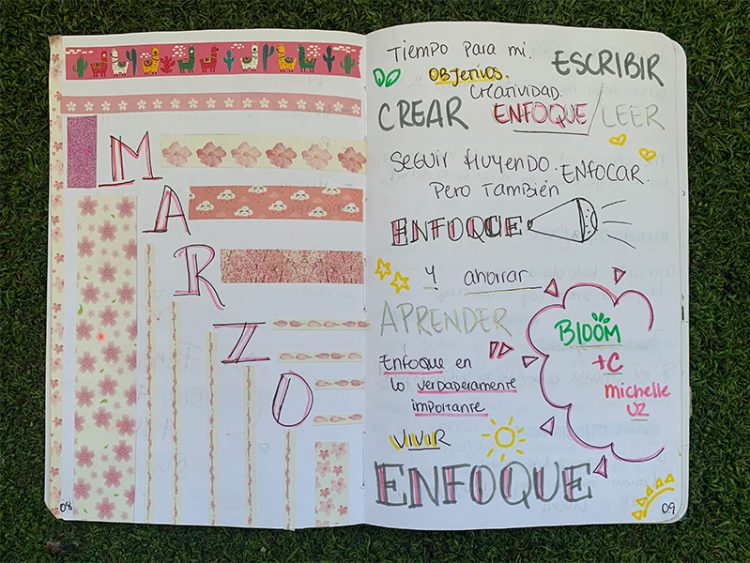 MARZO
08
Tiempo para mi.
Objetivos.
ESCRIBIR
Creatividad
CREAR
ENFOQUE/LEER
Seguir fluyendo.
Pero también
ENFOCAR.
ENFOQUE
y ahorrar
APRENDER
Enfoque en
lo verdaderamente
importante
VIVIR
ENFOQUE
BLOOM
+C
michelle
UZ
09